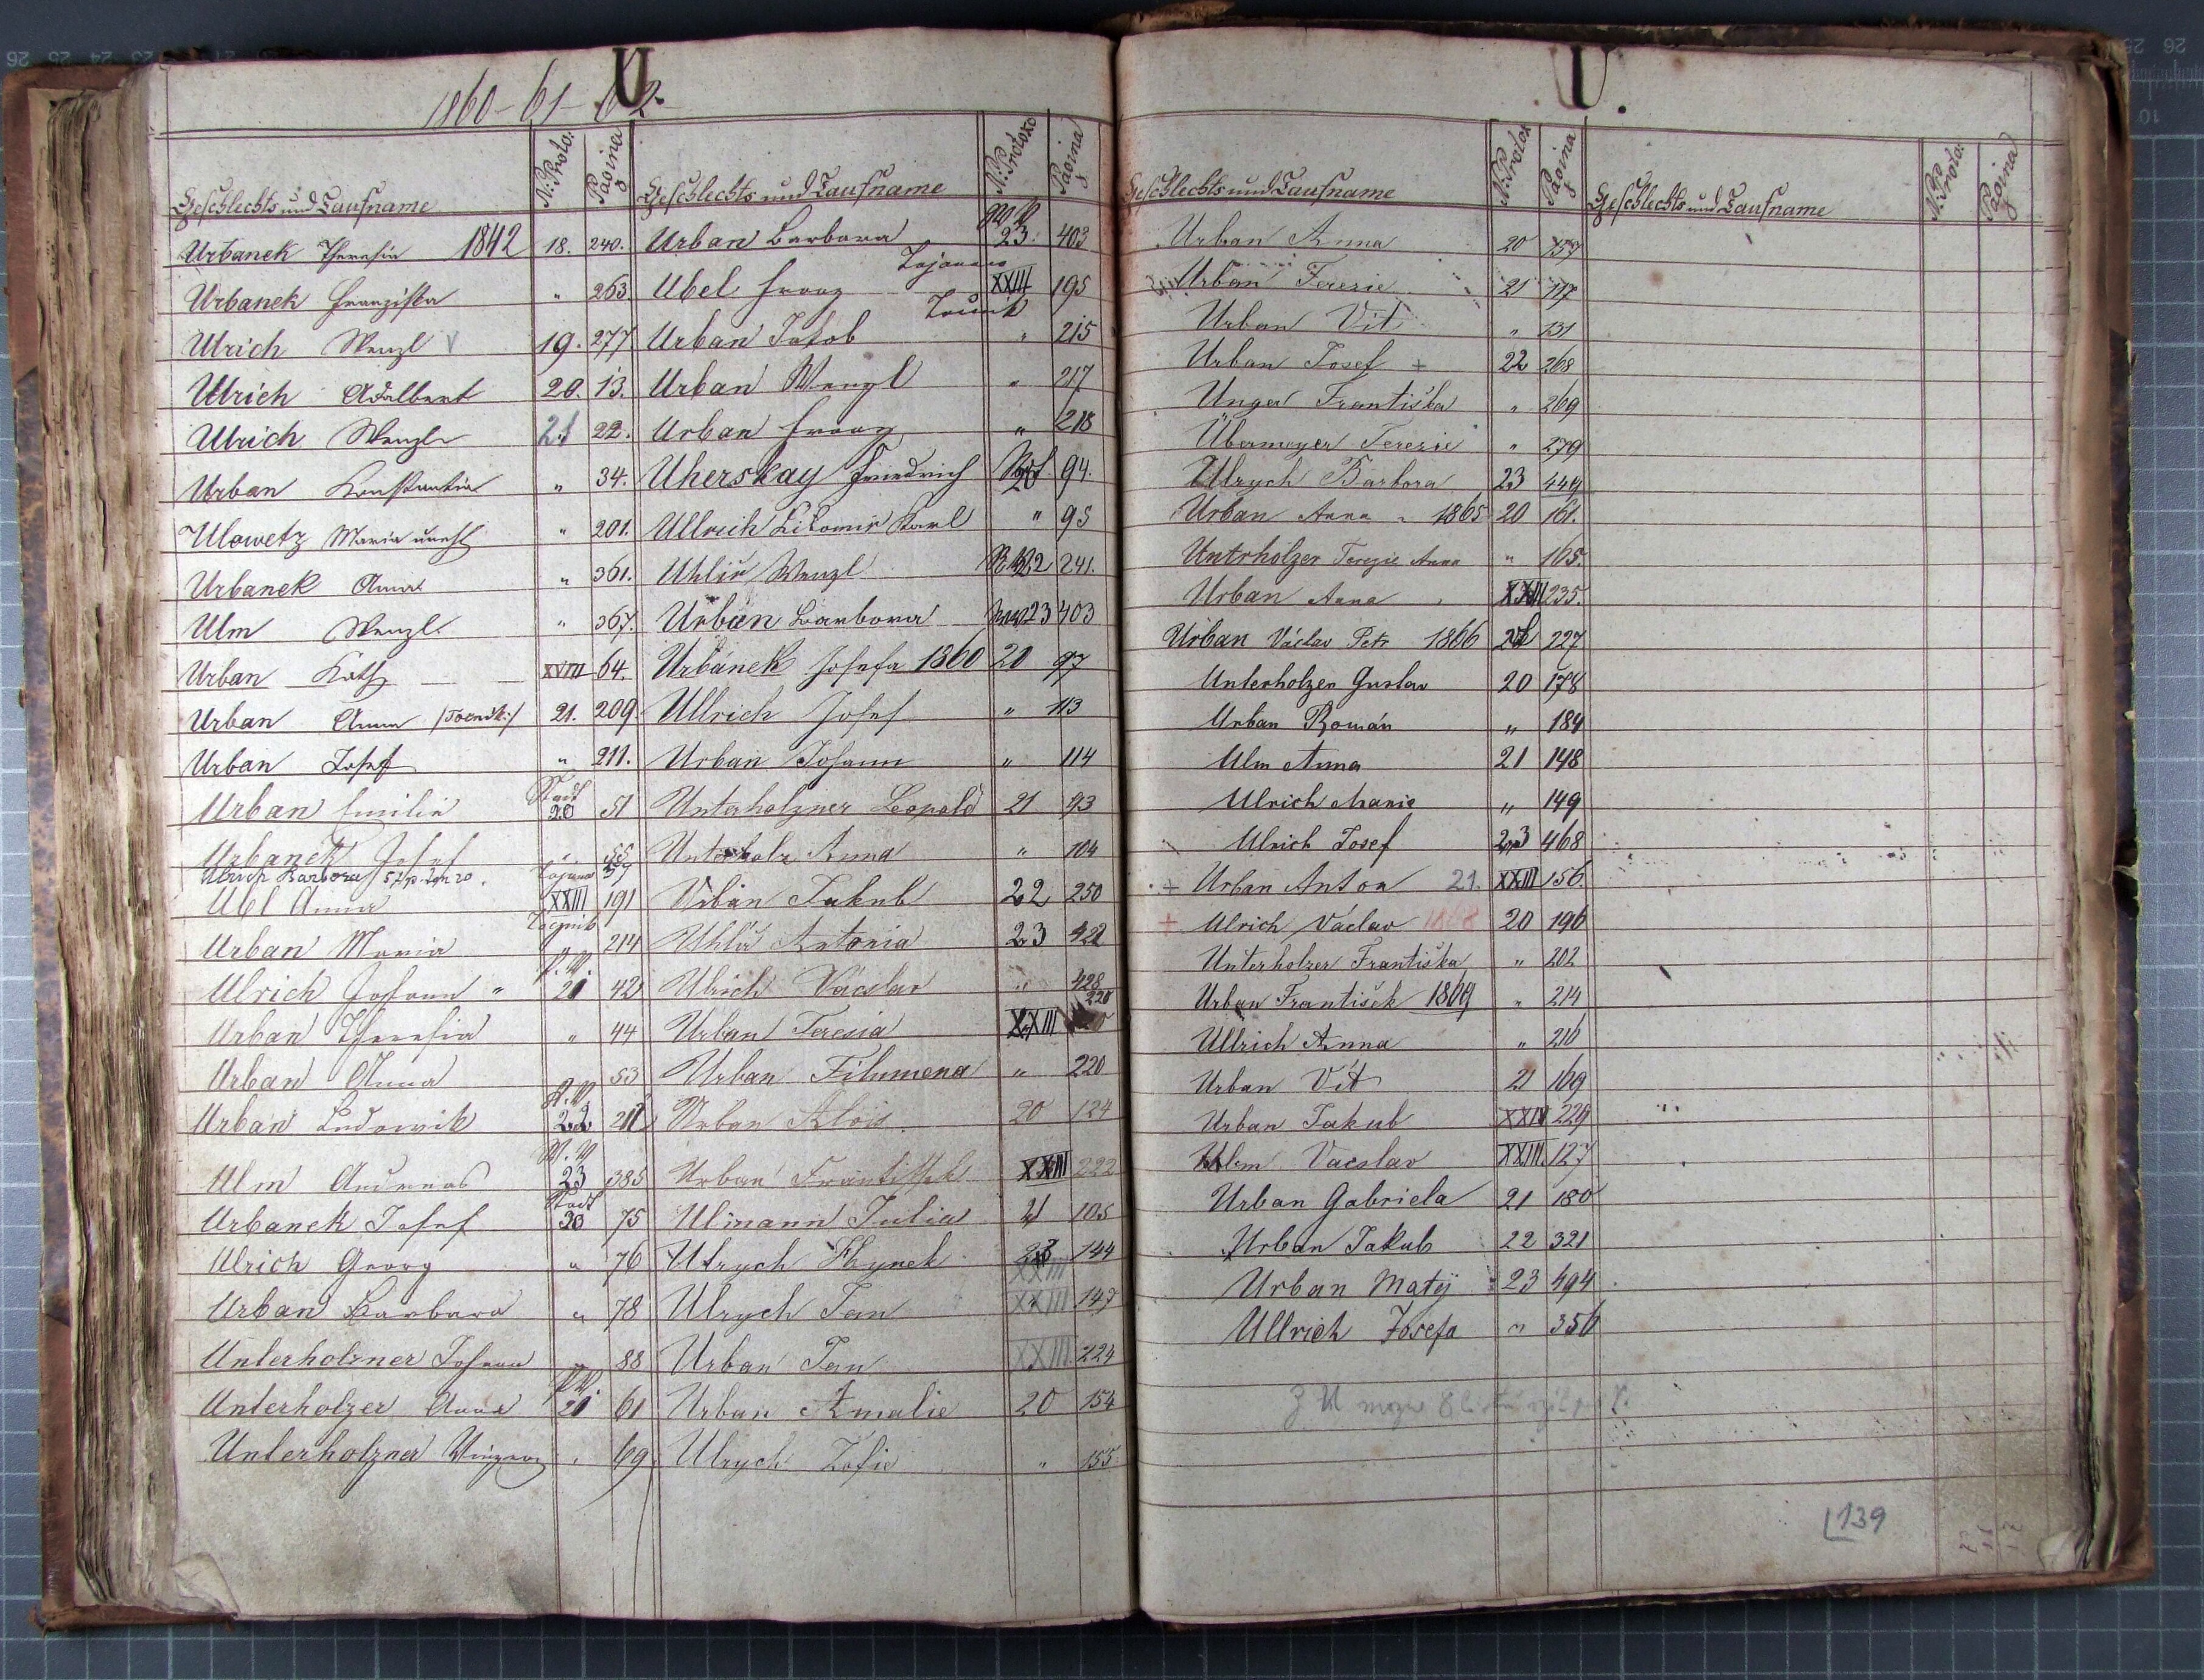 U
1860-61-62.
Geschlechts und Taufname N: Proto. Pagina
Urbanek Theresia 1842 18. 240.
Urbanek Franziska " 263
Ulrich Wenzl 19. 277
Ulrich Adalbert 20. 13.
Ulrich Wenzl 21 22.
Urban Konstantia " 34.
Ulowetz Maria " 201.
Urbanek Anna " 361.
Ulm Wenzl " 367.
Urban Kath XVIII 64.
Urban Anna /Točnik:/ 21. 209
Urban Josef " 211.
Urban Emilie Stadt 20 51
Urbanek Josef
Ulrich Barbora
Ubl Anna XXIII 191
Urban Maria " 214
Ulrich Johann " 21 42
Urban Theresia " 44
Urban Anna 53
Urban Ludowik 22
Ulm Andreas 23 385
Urbanek Josef Stadt 20 75
Ulrich Georg " 76
Urban Barbara " 78
Unterholzner Johann " 88
Unterholzer Anna 21 61
Unterholzner Vinzenz " 69
Geschlechts und Taufname N: Protoko Pagina
Urban Barbara 23. 403
Ubel Franz XXIII 195
Urban Jakob " 215
Urban Wenzl " 217
Urban Franz " 218
Uherskay Friedrich 94.
Ullrich Litomir Karl " 95
Uhlíř Wenzl 22 241.
Urban Barbora 23 403
Urbánek Josefa 1860 20 97
Ullrich Josef " 113
Urban Johann " 114
Unterholzner Leopold 21 93
Unterholz Anna " 104
Urban Jakub 22 250
Uhlíř Antonia 23 422
Ulrich Václav " 428
Urban Teresia XXIII 220
Urban Filumena " 220
Urban Alois 20 124
Urban František XXIII 222
Ulmann Julia 21 105
Ulrych Hynek XXIII 144
Ulrych Jan XXIII 147
Urban Jan XXIII 224
Urban Amalie 20 154
Ulrych Žofie " 155
U.
Geschlechts und Taufname N: Protok Pagina
Urban Anna 20 157
Urban Terezie 21 117
Urban Vít " 131
Urban Josef + 22 268
Unger Františka " 269
Übermeyer Terezie " 279
Ulrych Barbora 23 449
Urban Anna 1865 20 161.
Unterholzer Terezie Anna " 165.
Urban Anna XXIII 235.
Urban Václav Petr 1866 227
Unterholzer Gustav 20 178
Urban Román " 184
Ulm Anna 21 148
Ulrich Marie " 149
Ulrich Josef 23 468
+ Urban Anton 21. XXIII 156.
+ Ulrich Václav 1868 20 196
Unterholzer Františka " 202
Urban František 1869 " 214
Ullrich Anna " 216
Urban Vít 21 169
Urban Jakub XXIII 229
Ulm Vacslav XXIII. 127
Urban Gabriela 21 180
Urban Jakub 22 321
Urban Matěj 23 494
Ullrich Josefa " 356
Geschlechts und Taufname N: Proto: Pagina
139